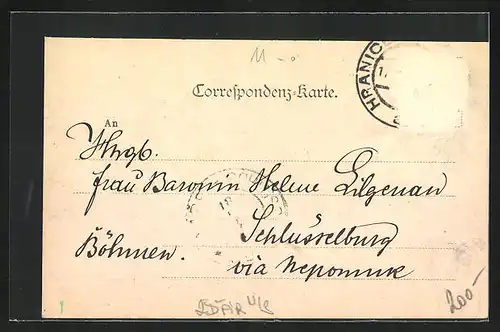 11 -
Correspondenz-Karte.
HRANIC
An
Hwgb.
Frau Baronin Helene Lilgenau
Schlüsselburg
Böhmen. via Nepomuk
ŽĎÁR
200-